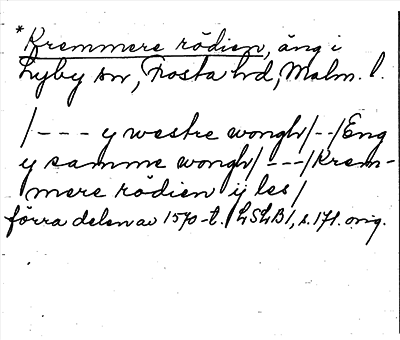 *Kremmere rödien, äng i
Lyby sn, Frosta hd, Malm. l.
/--- y westre wongh/--/Eng
y samme wongh/---/Krem-
mere rödien ij les/
förra delen av 1570-t. LSLB1, s. 171. orig.